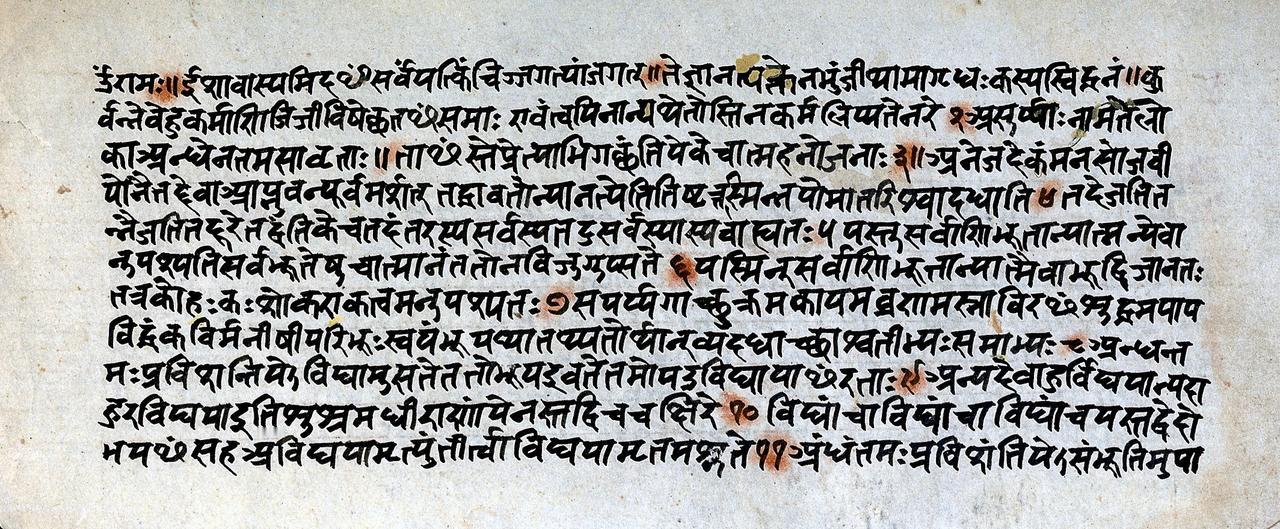 ॐरामः॥ईशावास्यमिदꣳसर्वंयत्किंचिज्जगत्यांजगत्॥तेनत्यक्तेनभुंजीथामागृधःकस्यस्विद्धनं॥कु
र्वन्नेवेहकर्माणिजिजीविषेछतꣳसमाः एवंत्वयिनान्यथेतोस्तिनकर्मलिप्यतेनरे २असुर्य्याःनामतेलो
काअन्धेनतमसावृताः॥ताꣳस्तेप्रेत्याभिगछंतियेकेचात्महनोजनाः३॥अनेजदेकंमनसोजवी
योनैनद्देवाआप्नुवन्पूर्वमर्शत् तद्धावतोन्यानत्येतितिष्टत्तस्मिन्नपोमातरिश्वादधाति ४ तदेजतित
न्नैजतितद्दूरेतद्वंतिकेचतदंतरस्यसर्वस्यतदुसर्वस्यास्यबाह्यतः५ यस्तुसर्वाणिभूतान्यात्मन्येवा
नुपश्यतिसर्वभूतेषुचात्मानंततोनविजुगुप्सते ६यस्मिन्सर्वाणिभूतान्यात्मैवाभूद्विजानतः
तत्रकोहःकःशोकएकत्वमनुपश्यतः७सपर्य्यगाच्छुक्रमकायमव्रणमस्नाविरꣳशुद्धमपाप
विद्धंकविर्मनीषीपरिभूःस्वयंभूयथातथ्यतोर्थान्व्यदधाच्छाश्वतीभ्यःसमाभ्यः८अन्धन्त
मःप्रविशन्तियेऽविद्यामुसतेततोभूयइवतेतमोयउविद्यायाꣳरताः९अन्यदेवाहुर्विद्ययान्यदा
हुरविद्ययाइतिशुश्रुमधीराणांयेनस्तद्विचचक्षिरे १० विद्यांचाविद्यांचाविद्यांचयस्तद्वेदो
भयꣳसहअविद्ययामृत्युंतीर्त्वाविद्ययामृतमश्नुते११अंधंतमःप्रविशंतियेऽसंभूतिमुपा